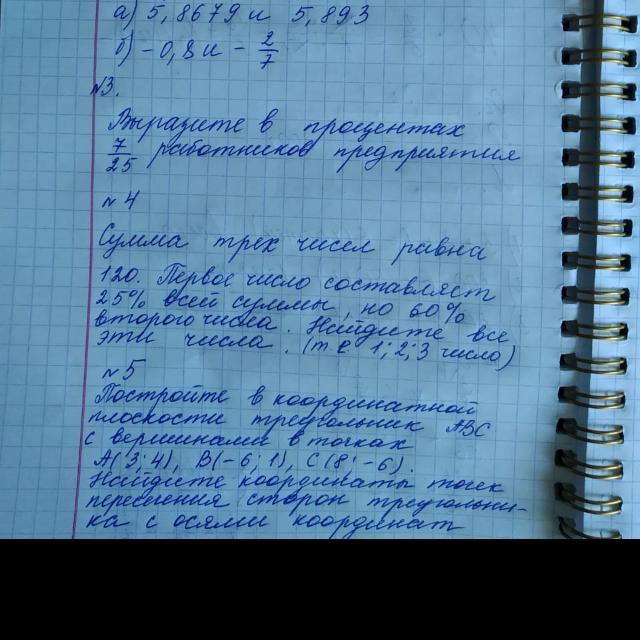 а) 5,8679 и 5,893
б) -0,8 и - 2/7
№3.
Выразите в процентах
7/25 работников предприятия
№4
Сумма трех чисел равна
120. Первое число составляет
25% всей суммы, но 60%
второго числа. Найдите все
эти числа. (т.е 1; 2; 3 число)
№5
Постройте в координатной
плоскости треугольник АВС
с вершинами в точках
А(3; 4), В(-6; 1), С(8; -6).
Найдите координаты точек
пересечения сторон треугольни-
ка с осями координат